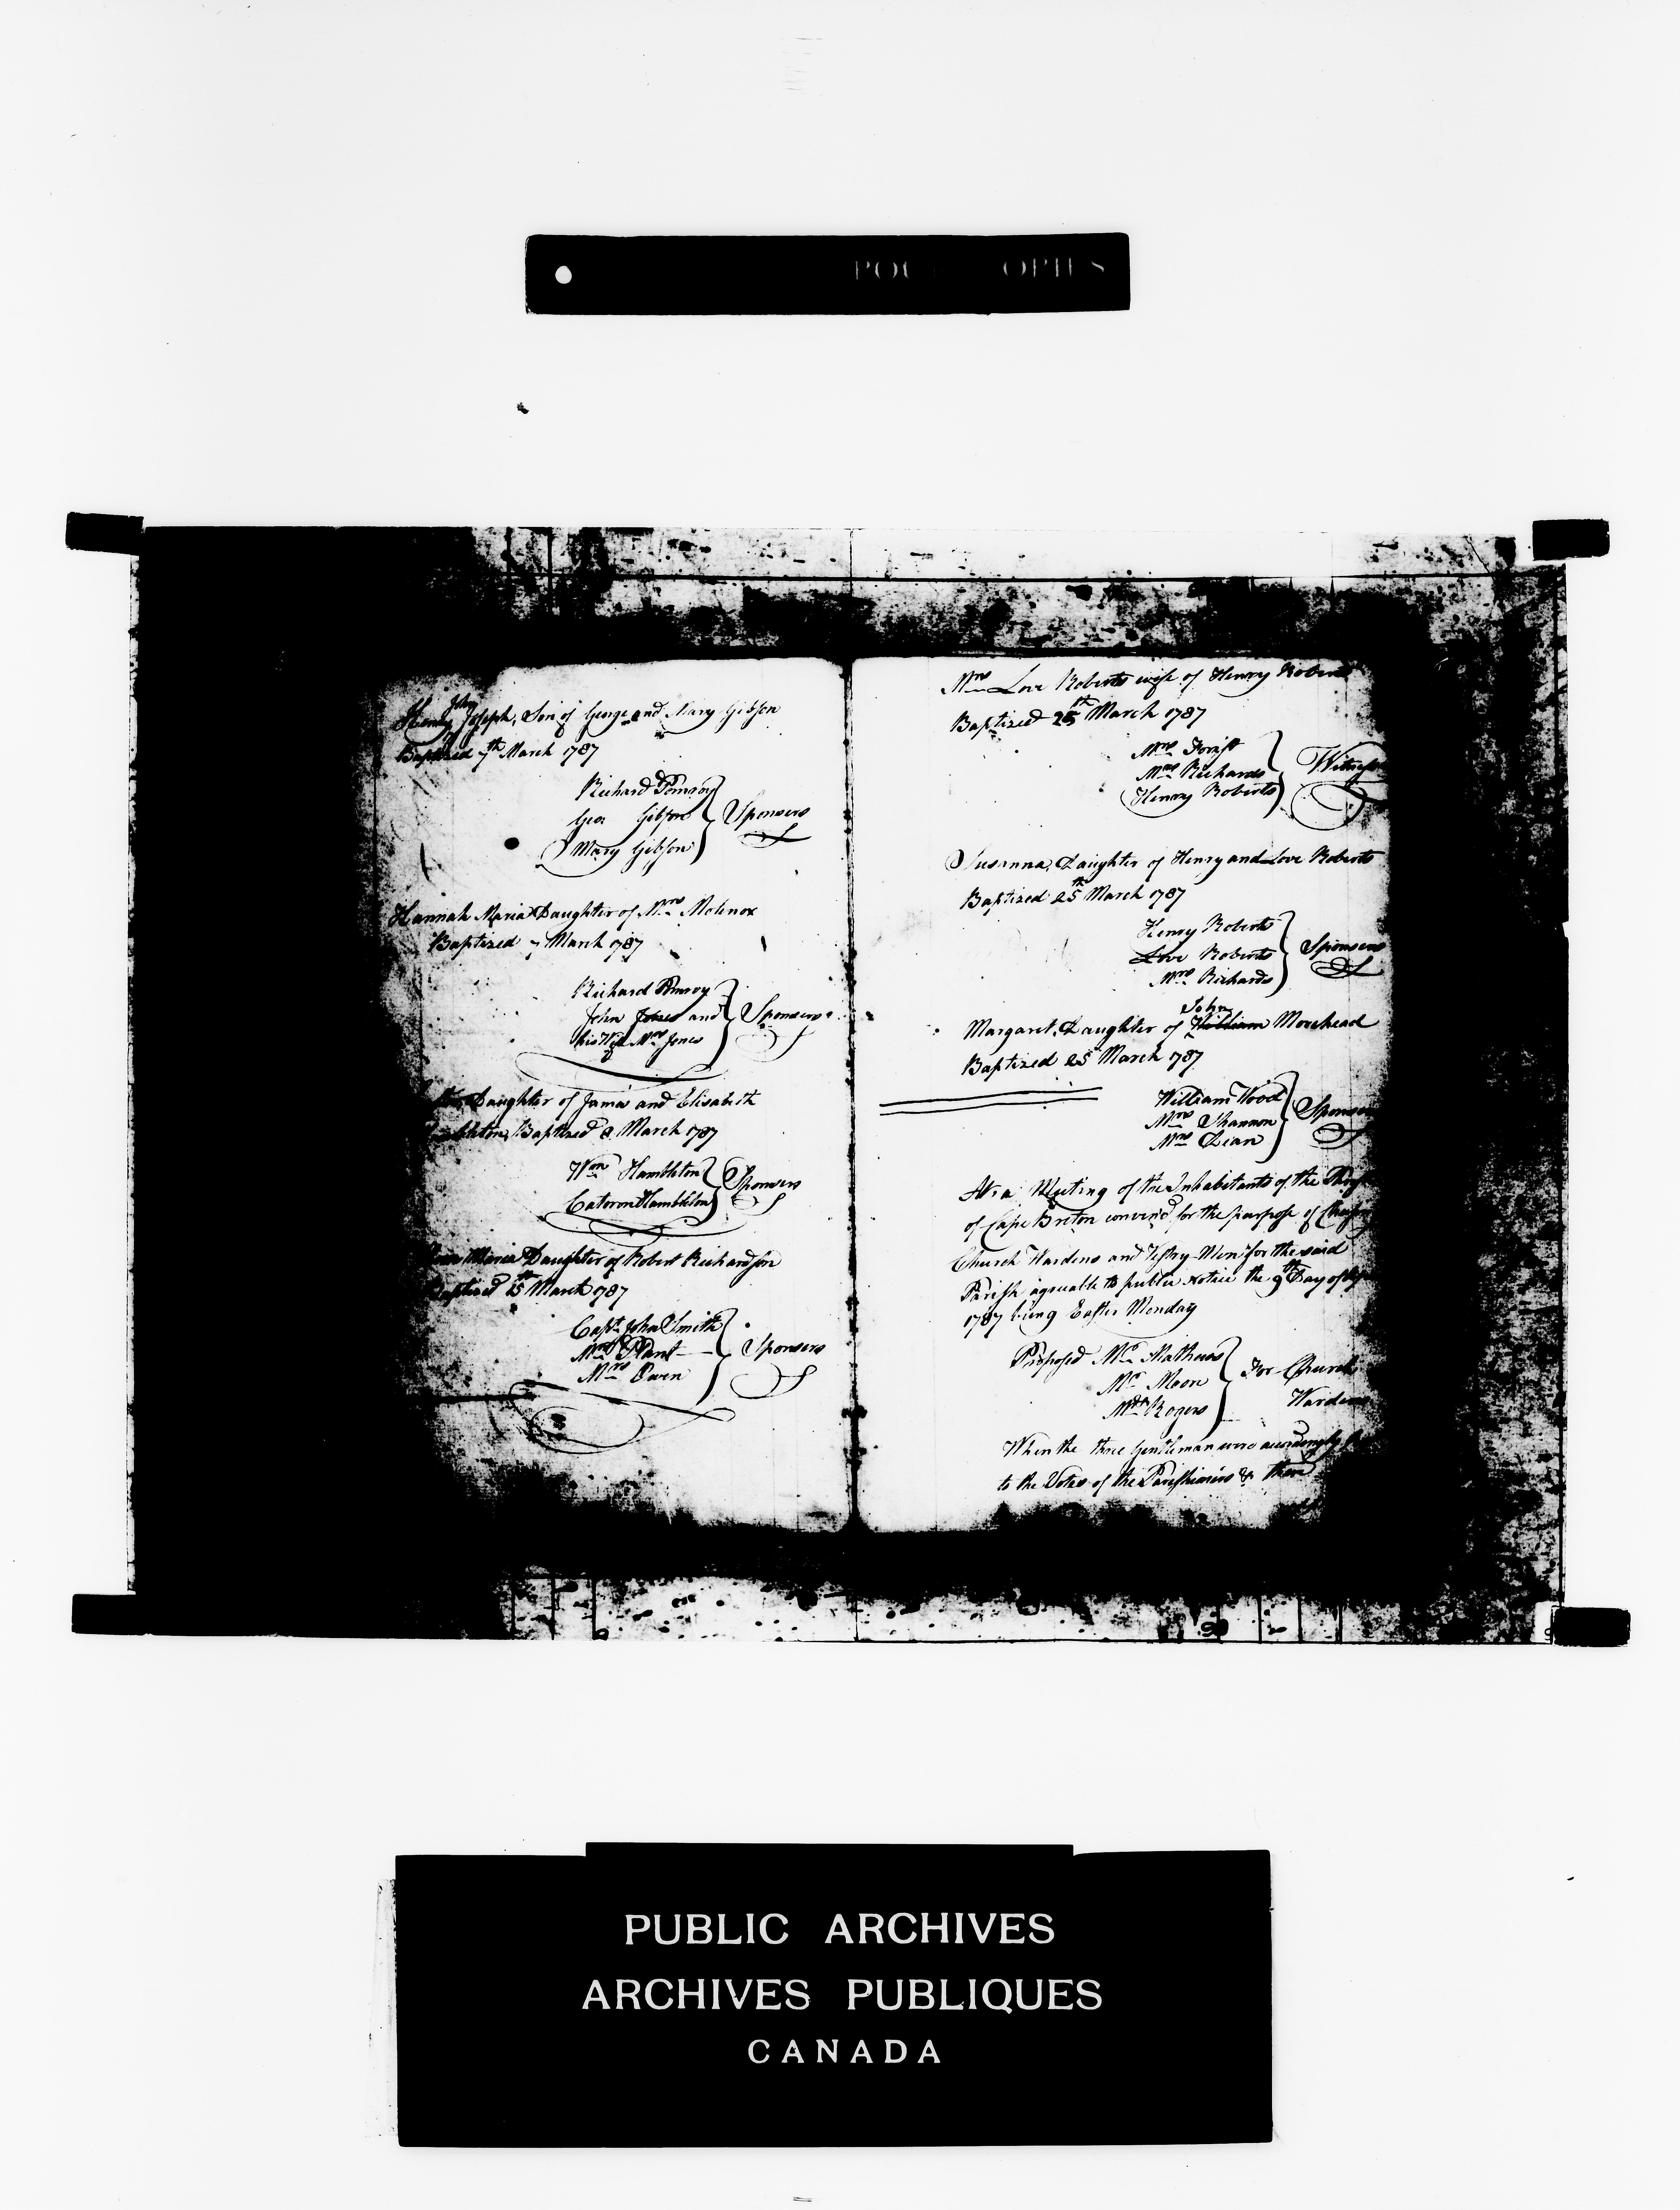 John
Henry Joseph, Son of George and Mary Gibson
Baptized 7th March 1787
Richard Pomroy
Geo Gibson
Mary Gibson
Sponsers
Hannah Maria Daughter of Mrs Molenox
Baptized 7 March 1787
Richard Pomroy
John Jones and
his Wife Mrs Jones
Sponsers
Daughter of James and Elisabeth
Baptized 8 March 1787
Wm Hambleton
Cateron Hambleton
Sponsers
Maria Daughter of Robert Richardson
Baptized 15th March 1787
Capt John Smith
Mrs Plant
Mrs Owen
Sponsers
Mrs Love Roberts wife of Henry Roberts
Baptized 25th March 1787
Mrs
Mrs Richards
Henry Roberts
Susanna, Daughter of Henry and Love Roberts
Baptized 25th March 1787
Henry Roberts
Love Roberts
Mrs Richards
Sponsers
John
Margaret, Daughter of William Morehead
Baptized 25 March 1787
William Wood
Mrs Shannon
Mrs Dian
Sponsers
At a Meeting of the Inhabitants of the
of Cape Breton conven'd for the purpose of
Church Wardens and Vestry Men for the said
Parish agreeable to public notice the 9th Day of
1787 being Easter Monday
Proposed Mr Mathews
Mr Moore
Mr Rogers
For Church
Wardens
When the three Gentleman were accordingly
to the Votes of the Parishioners &
PUBLIC ARCHIVES
ARCHIVES PUBLIQUES
CANADA